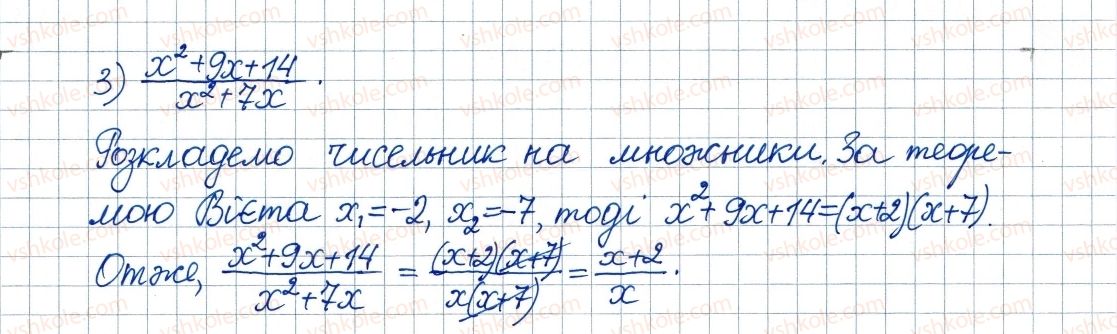 3) (x²+9x+14)/(x²+7x).
Розкладемо чисельник на множники. За теоре-
мою Вієта x₁=-2, x₂=-7, тоді x²+9x+14=(x+2)(x+7).
Отже, (x²+9x+14)/(x²+7x) = ((x+2)(x+7))/(x(x+7)) = (x+2)/x.